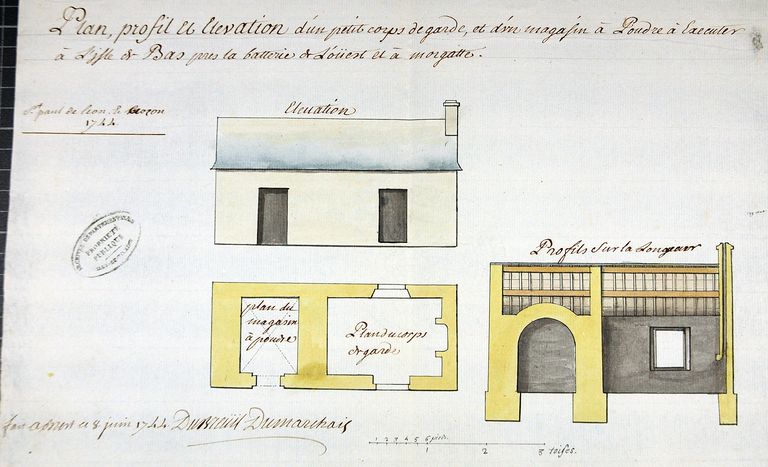 Plan, profil et Elevation d'un petit corps de garde, et d'un magasin à Poudre à Executer
à L'isle de Bas pres la batterie de L'oüest et à morgatte.
St paul de leon, le
1744
Elevation
PROPRIÉTÉ
PUBLIQUE
Profils sur la Longueur
plan du
magasin
à poudre
Plan du corps
de garde
fait a brest ce 8 juin 1744 Dubreüil Dumarchais
1 2 3 4 5 6 pieds.
1 2 3 toises.